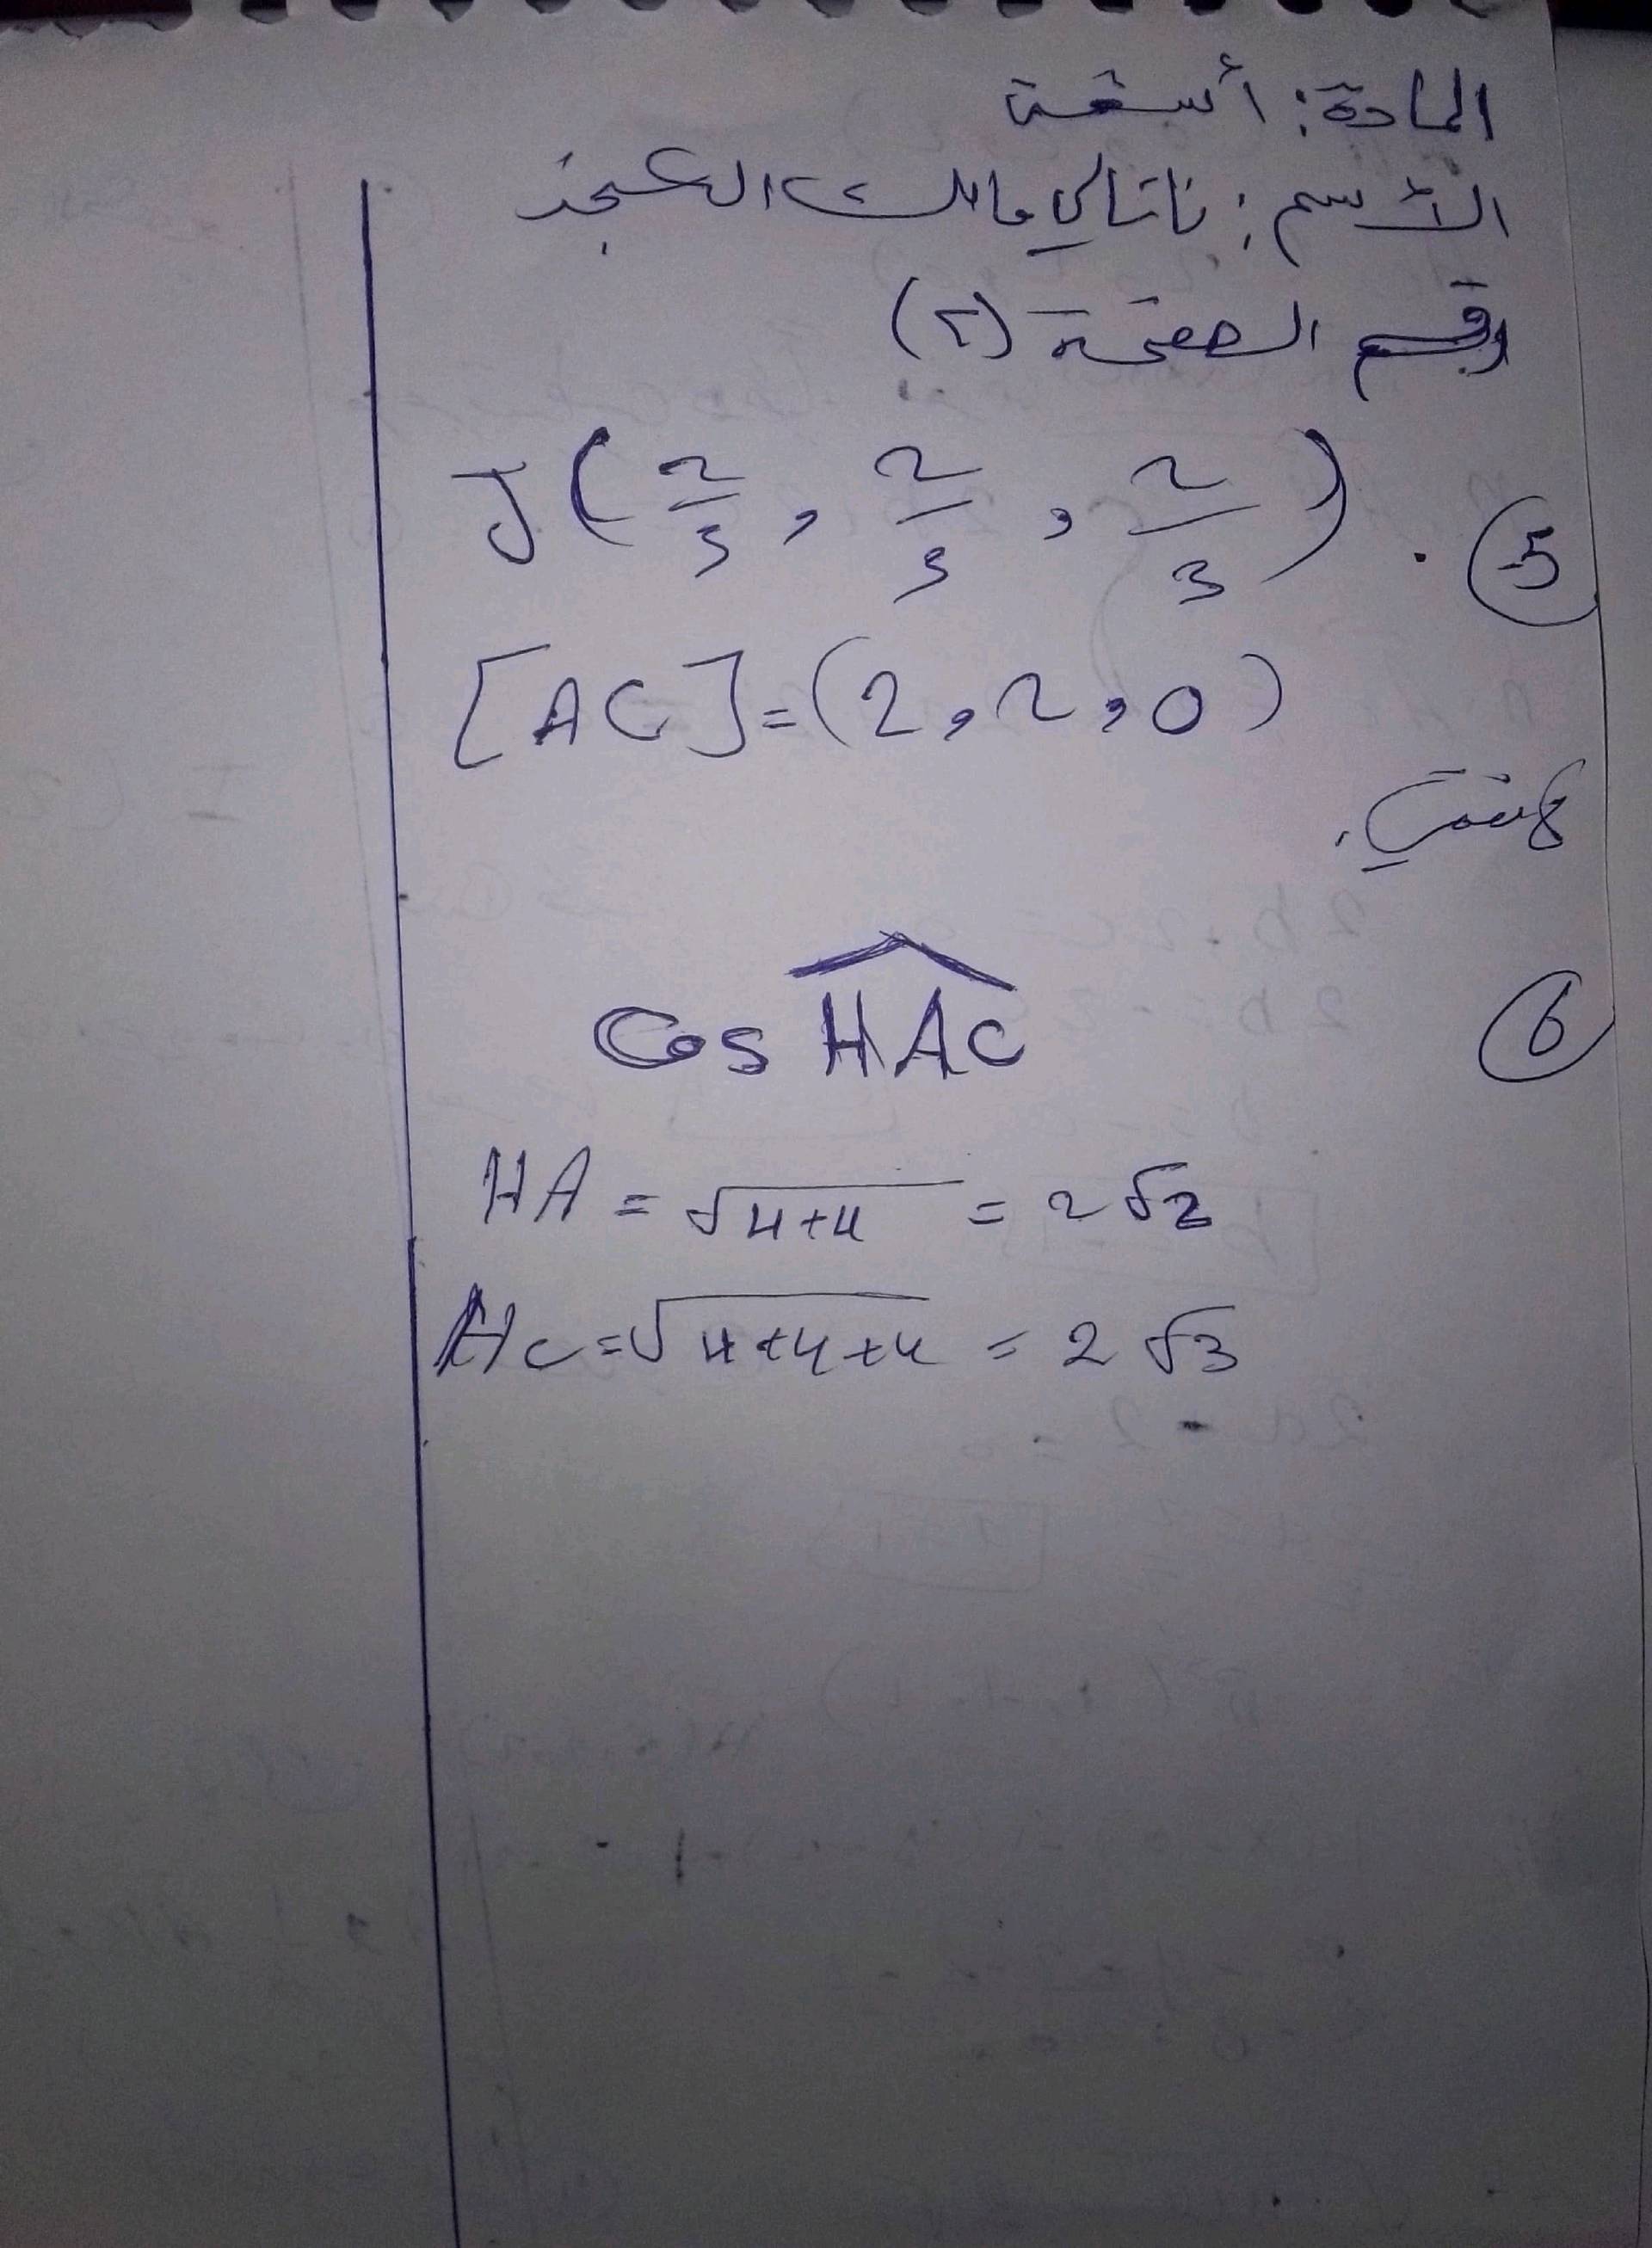 المادة: أتمتة
الأسم: ناتالي مالك
رقم الصفحة (2)
5. J(2/3, 2/3, 2/3)
[AC]=(2, 2, 0)
6 Cos HAC
HA = √4+4 = 2√2
HC = √4+4+4 = 2√3